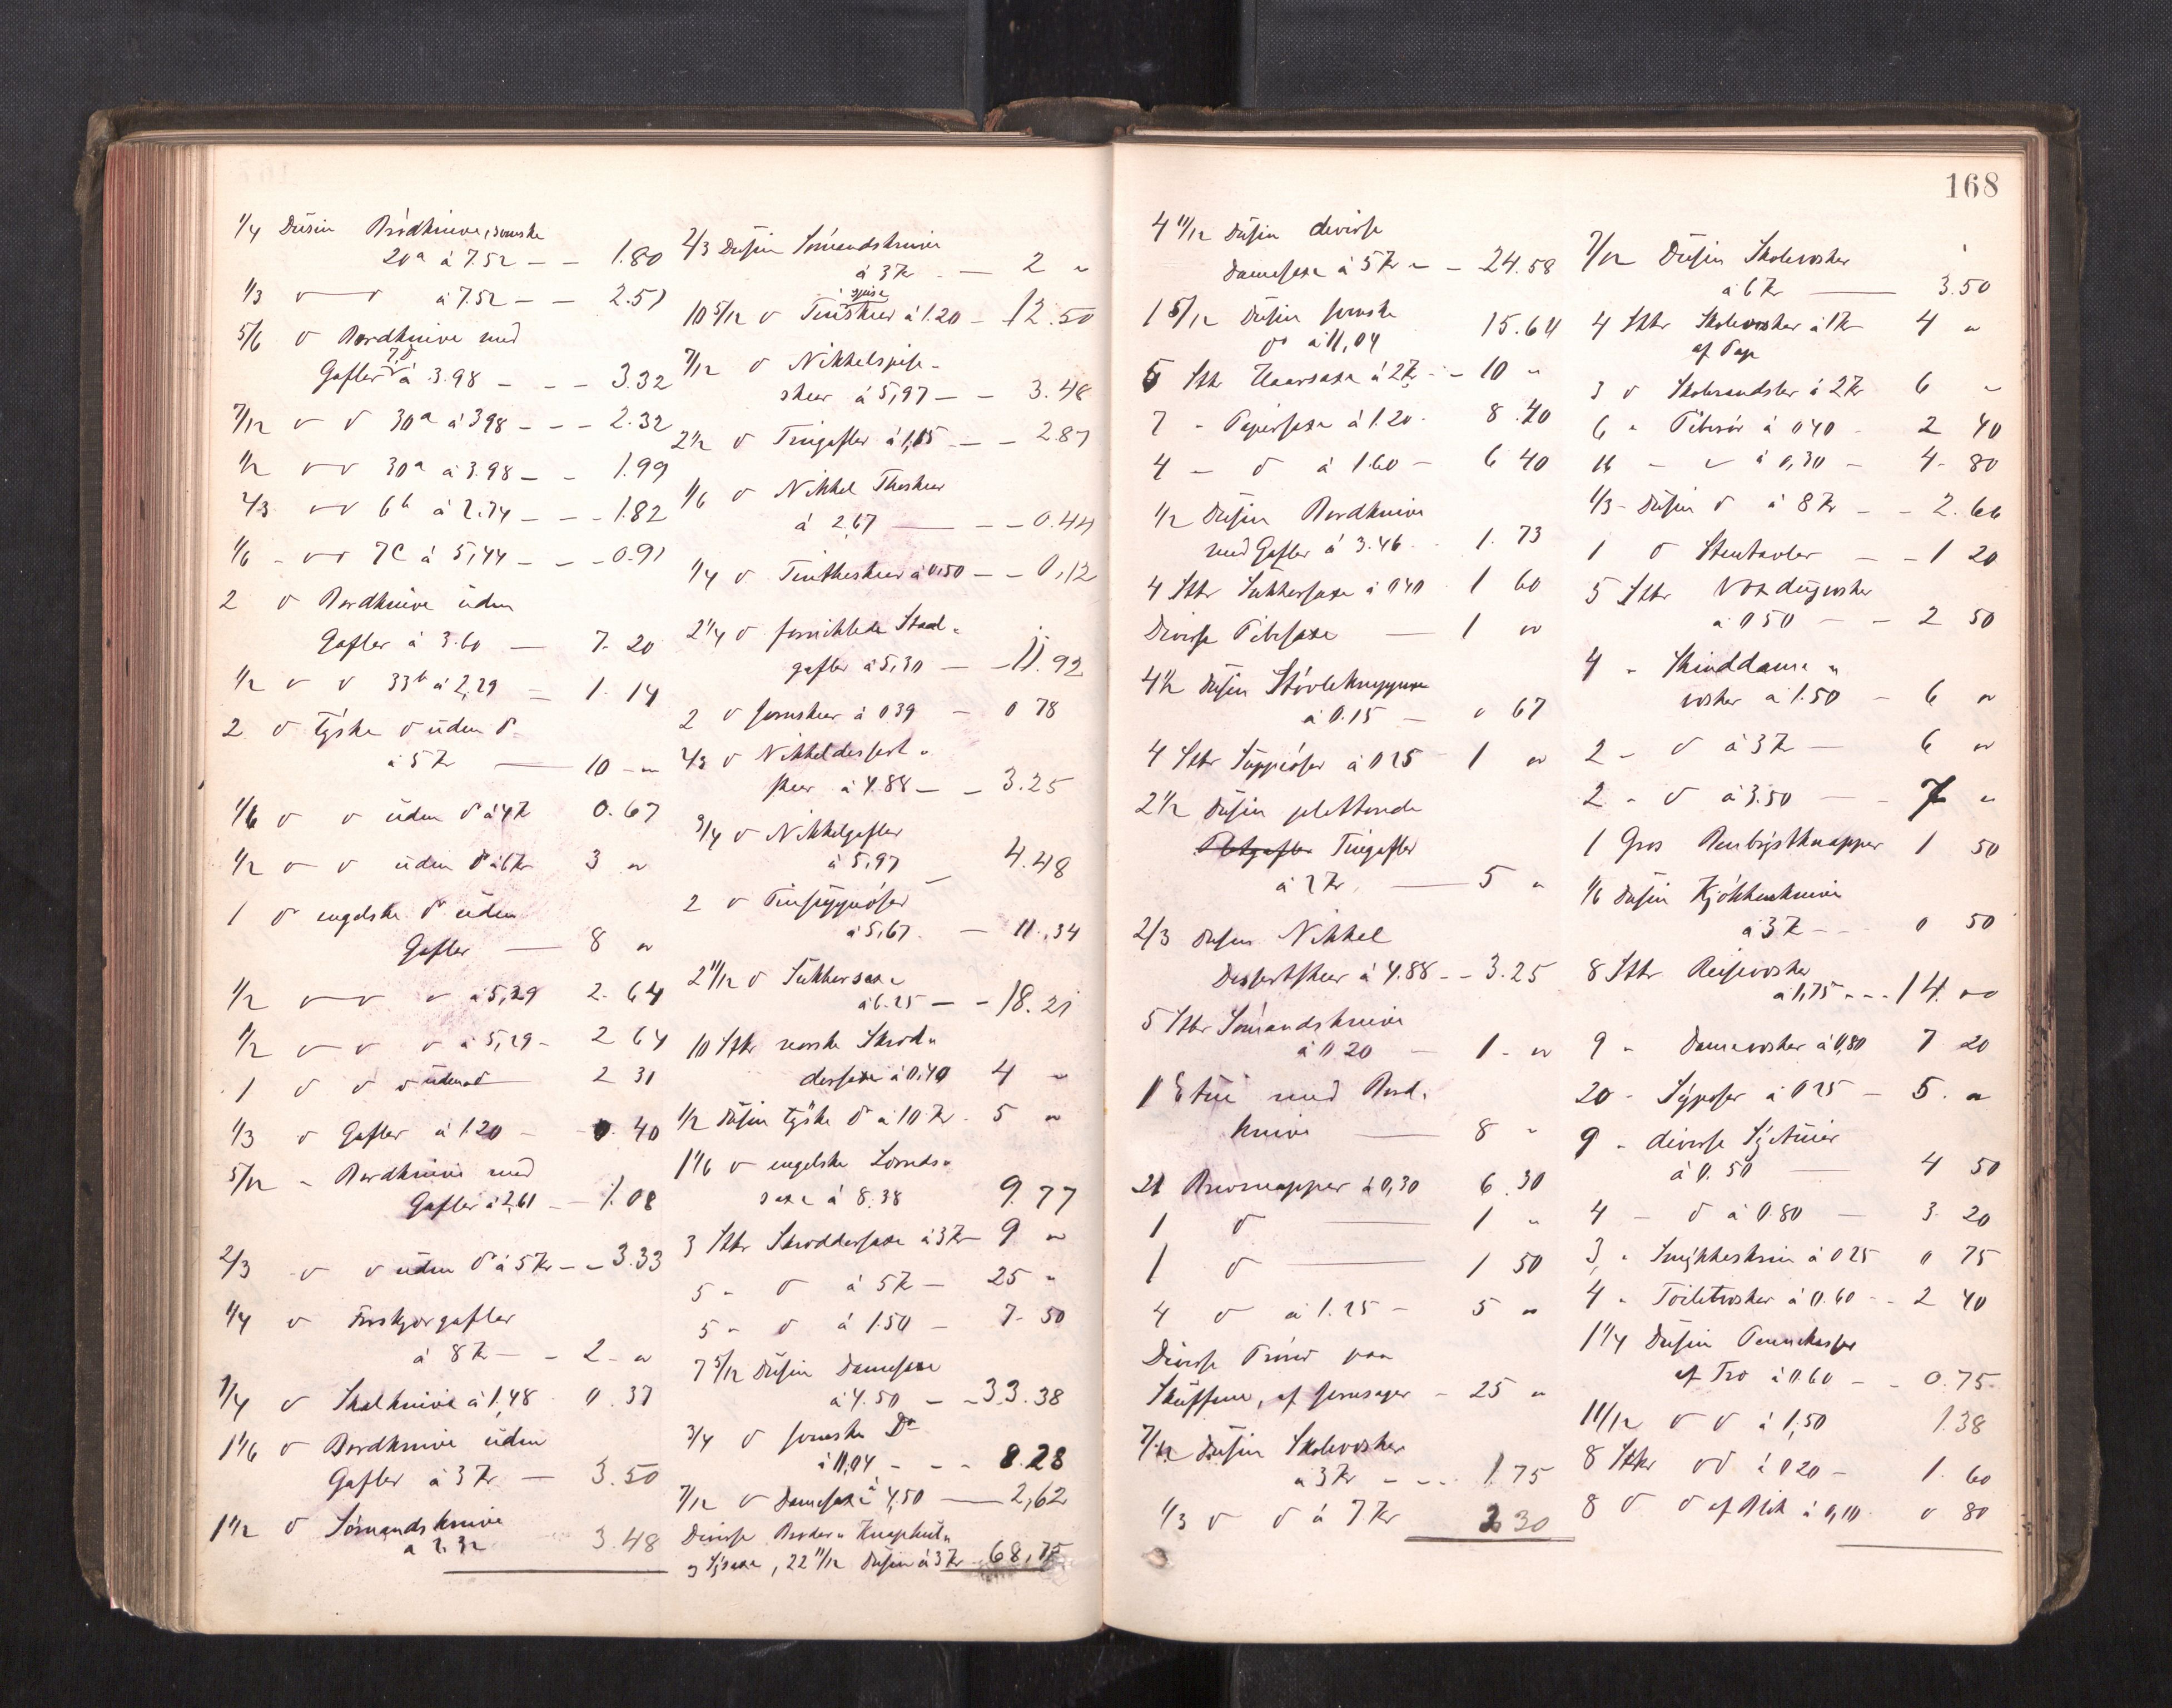 168
1/4 Dusin Brödknive, svenske
20a á 7.52 – – 1.80
1/3 " " á 7.52 – – 2.51
5/6 " Bordknive med
Gafler 7,0 á 3.98 – – – 3.32
7/12 " " 30a á 398 – – – 2.32
1/2 " " 30a á 3.98 – – 1.99
2/3 " " 6b á 2.74 – – – 1.82
1/6 – " " 7C á 5,44 – – – 0.91
2 " Bordknive uden
Gafler á 3.60 — 7. 20
1/2 " " 33b á 2,29 – 1. 14
2 " tyske " uden "
á 5 Kr — 10 – "
1/6 " " uden " á 4 Kr 0. 67
1/2 " " uden " á 6 Kr 3 "
1 " engelske " uden
Gafler — 8 "
1/2 " " " á 5,29 2. 64
1/2 " " " á 5,29 – 2 64
1 " " " uden " 2 31
1/3 " Gafler á 1.20 – – 0. 40
5/12 " Bordknive med
Gafler á 2,61 – – 1. 08
2/3 " " uden " á 5 Kr – – 3.33
1/4 " Forskjærgafler
á 8 Kr – – 2 – "
1/4 " Skalknive á 1,48 0. 37
1 1/6 " Bordknive uden
Gafler á 3 Kr — 3.50
1 1/2 " Sömandsknive
á 2.32 3.48
2/3 Dusin Sömandsknive
á 3 Kr – — 2 "
10 5/12 " Tinspiseskeer á 1.20 – 12.50
7/12 " Nikkelspise-
skeer á 5,97 – – 3.48
2 1/2 " Tingafler á 1,15 – – 2.87
1/6 " Nikkel Theskeer
á 2,67 — – – 0.44
1/4 " Tintheskeer á 0,50 – – 0,12
2 1/4 " fornikklede Staal-
gafler á 5,30 – – 11.92
2 " Jernskeer á 0.39 – 0 78
2/3 " Nikkeldessert-
skeer á 4.88 – – 3.25
3/4 " Nikkelgafler
á 5,97 – 4.48
2 " Tinsuppeöser
á 5,67 – 11.,34
2 11/12 " Sukkersaxe
á 6.25 – – 18.21
10 Stkr norske Skræd-
dersaxe á 0,40 4 "
1/2 Dusin tyske " á 10 Kr. 5 "
1 1/6 " engelske Lomme-
saxe á 8.38 9.77
3 Stkr Skræddersaxe á 3 Kr – 9 "
5 " " á 5 Kr – 25 "
5 " " á 1.50 – 7. 50
7 5/12 Dusin Damesaxe
á 4.50 – – 33.38
3/4 " svenske Do
á 11,04 – – – 8.28
7/12 " Damesaxe á 4,50 — 2,62
Diverse Broder- Knaphul-
og Sysaxe, 22 11/12 Dusin á 3 Kr 68,75
4 11/12 Dusin diverse
Damesaxe á 5 Kr – – 24.58
1 5/12 Dusin svenske
Do á 11,04 15.64
5 Stk Haarsaxe á 2 Kr – – 10 "
7 " Papirsaxe á 1.20 – 8.40
4 – " á 1.60 – 6 40
1/2 Dusin Bordknive
med Gafler á 3.46 – 1. 73
4 Stkr Sukkersaxe á 0.40 1 60
Diverse Pibesaxe — 1 "
4 1/2 Dusin Stövleknappere
á 0.15 – " 67
4 Stkr Suppeöser á 0.25 – 1 "
2 1/2 Dusin pletterede
Tingafler
á 2 Kr. — 5 "
2/3 Dusin Nikkel
Dessertskeer á 4.88 – – 3.25
5 Stkr Sömandsknive
á 0.20 – 1 – "
1 Etui med Bord-
knive — 8 "
21 Brevmapper á 0,30 6.30
1 " — 1 "
1 " — 1 50
4 " á 1.25 – 5 "
Diverse Pröver paa
Skuffene, af Jernsager – 25 "
7/12 Dusin Skolevæsker
á 3 Kr – – – 1.75
1/3 " " á 7 Kr 2 30
7/12 Dusin Skolevæsker
á 6 Kr — 3.50
4 Stkr Skolevæsker á 1 Kr 4 "
af Pap
3 " Skolerandsler á 2 Kr 6 "
6 " Piberör á 0.40 – 2 40
16 – " á 0,30 – 4 – 80
1/3 – Dusin " á 8 Kr – – 2.66
1 " Stentavler – – 1 20
5 Stkr Voxdugvæsker
á 0 50 – – 2 50
4 " Skinddame-
væsker á 1.50 – 6 "
2 – " á 3 Kr — 6 "
2 " " á 3.50 — – 7 "
1 Gros Benbrystknapper 1 50
1/6 Dusin Kjökkenknive
á 3 Kr – – – 0 50
8 Stkr Reisevæsker
á 1,75 – – – 14. "
9 " Damevæsker á 0,80 7 20
20 – Syposer á 0.25 – 5. "
9 " diverse Syetuier
á 0.50 — 4 50
4 – " á 0.80 — 3. 20
3 " Smykkeskrin á 0.25 0 75
4 " Toiletvæsker á 0.60 – – 2 40
1 1/4 Dusin Pennekasser
af Træ á 0.60 – – 0.75
11/12 " " á 1,50 1.38
8 Stkr " " á 0.20 – 1. 60
8 " " af Blik á 0,10 0 80